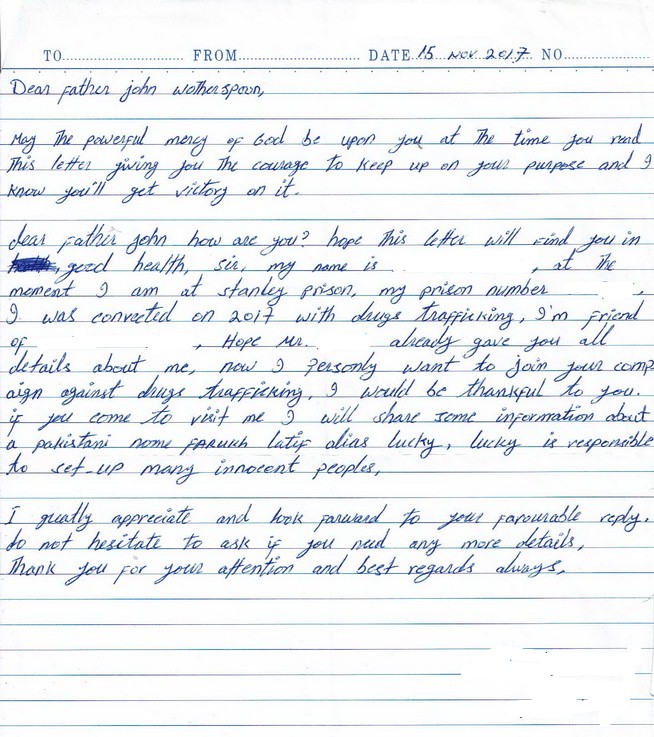 TO.............................. FROM.............................. DATE 15 NOV 2017 NO..................
Dear Father john wotherspoon,
May The powerful mercy of God be upon you at The time you read
This letter giving you The courage to keep up on your purpose and I
know you'll get victory on it.
dear Father john how are you? hope This letter will find you in
good health, sir, my name is , at The
moment I am at stanley prison, my prison number ,
I was convected on 2017 with drugs trafficking, I'm friend
of , Hope Mr. already gave you all
details about me, now I Personly want to join your comp
aign against drugs trafficking, I would be thankful to you.
if you come to visit me I will share some information about
a pakistani nome FARUKH latif alias lucky, lucky is responsible
to set-up many innocent peoples,
I greatly appreciate and look forward to your favourable reply.
do not hesitate to ask if you need any more details,
Thank you for your attention and best regards always,